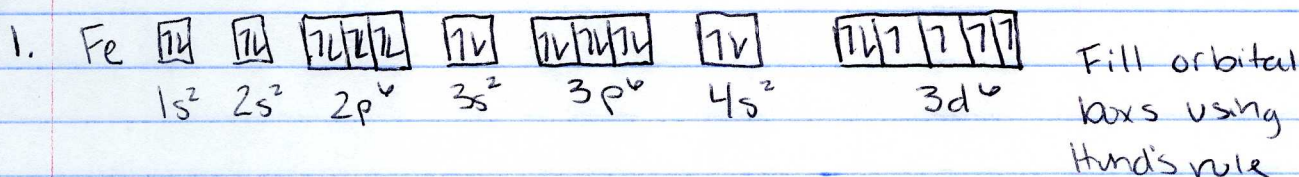 1. Fe 1s² 2s² 2p⁶ 3s² 3p⁶ 4s² 3d⁶
Fill orbital
boxs using
Hund's rule